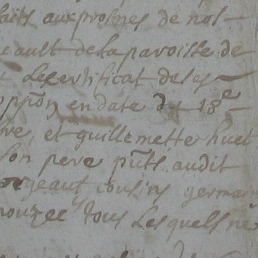 faits aux prosnes de nos
eault de la paroisse de
t Le certificat des es
opp͠on en date du 18e
bre, et guillemette huet
son pere pn͠ts audit
rgeant cousins germai
pouzee tous Lesquels ne